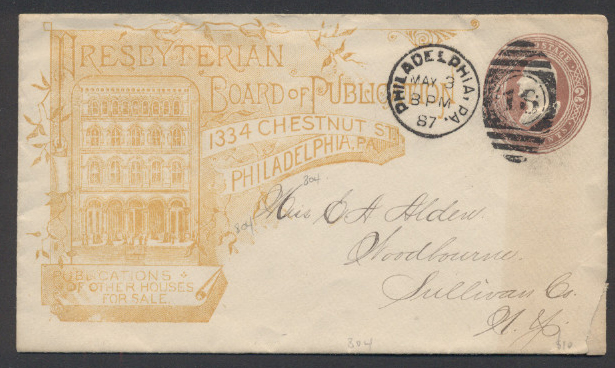 PRESBYTERIAN
BOARD OF PUBLICATION
1334 CHESTNUT ST.
PHILADELPHIA, PA.
PUBLICATIONS
OF OTHER HOUSES
FOR SALE.
PHILADELPHIA, PA.
MAY 3
8 PM
87
POSTAGE
804
804
Miss C A Alden
Woodbourne.
Sullivan Co.
N. Y.
804